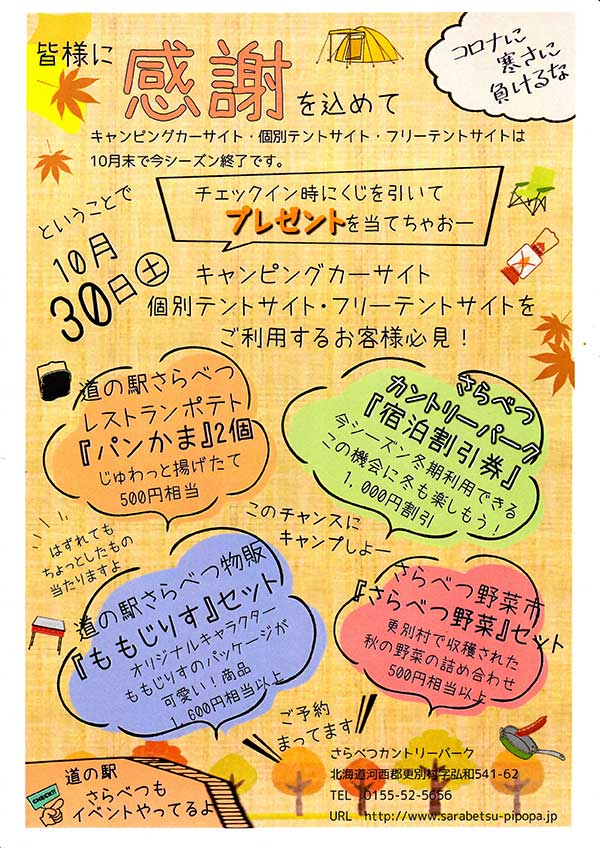 皆様に
感謝
を込めて
コロナに
寒さに
負けるな
キャンピングカーサイト・個別テントサイト・フリーテントサイトは
10月末で今シーズン終了です。
ということで
チェックイン時にくじを引いて
プレゼントを当てちゃおー
10月
30日土
キャンピングカーサイト
個別テントサイト・フリーテントサイトを
ご利用するお客様必見！
道の駅さらべつ
レストランポテト
『パンかま』2個
じゅわっと揚げたて
500円相当
さらべつ
カントリーパーク
『宿泊割引券』
今シーズン冬期利用できる
この機会に冬も楽しもう！
1,000円割引
はずれても
ちょっとしたもの
当たりますよ
このチャンスに
キャンプしよー
道の駅さらべつ物販
『ももじりす』セット
オリジナルキャラクター
ももじりすのパッケージが
可愛い！商品
1,600円相当以上
さらべつ野菜市
『さらべつ野菜』セット
更別村で収穫された
秋の野菜の詰め合わせ
500円相当以上
ご予約
まってます
CHECK!!
道の駅
さらべつも
イベントやってるよ
さらべつカントリーパーク
北海道河西郡更別村字弘和541-62
TEL 0155-52-5656
URL http://www.sarabetsu-pipopa.jp